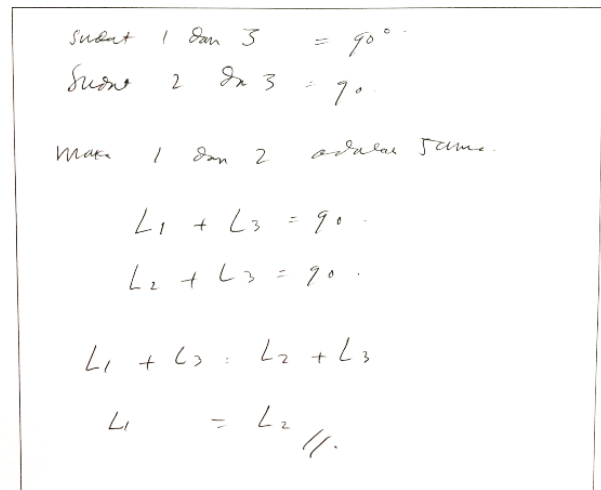 sudut 1 dan 3 = 90°.
Sudut 2 dn 3 = 90.
maka 1 dan 2 adalah sama.
L1 + L3 = 90.
L2 + L3 = 90.
L1 + L3 = L2 + L3
L1 = L2 //.